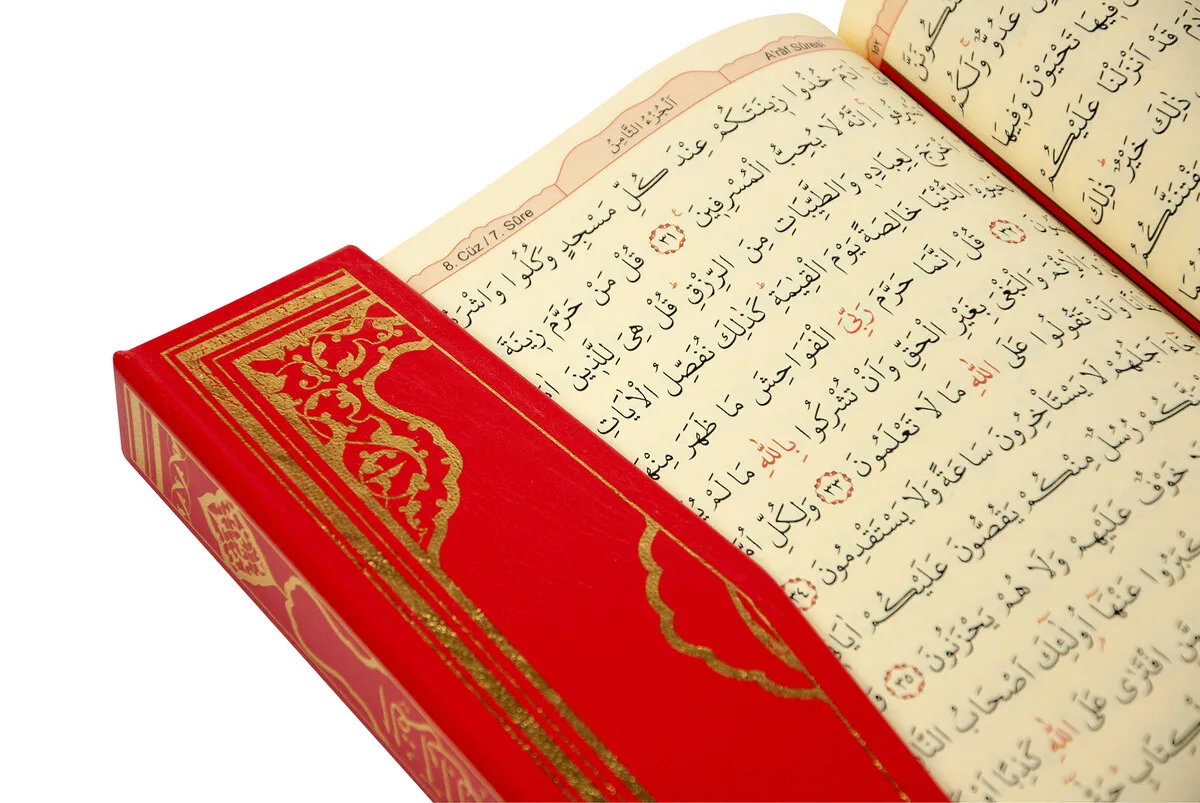 A'râf Sûresi
اَلْجُزْءُ الثَّامِنُ
8. Cüz / 7. Sûre
اٰدَمَ خُذُوا زٖينَتَكُمْ عِنْدَ كُلِّ مَسْجِدٍ وَكُلُوا وَاشْرَ
اِنَّهُ لَا يُحِبُّ الْمُسْرِفٖينَ ﴿٣١﴾ قُلْ مَنْ حَرَّمَ زٖينَةَ
اَخْرَجَ لِعِبَادِهٖ وَالطَّيِّبَاتِ مِنَ الرِّزْقِ قُلْ هِىَ لِلَّذٖينَ
الدُّنْيَا خَالِصَةً يَوْمَ الْقِيٰمَةِ كَذٰلِكَ نُفَصِّلُ الْاٰيَاتِ
﴿٣٢﴾ قُلْ اِنَّمَا حَرَّمَ رَبِّىَ الْفَوَاحِشَ مَا ظَهَرَ مِنْهَا
وَالْاِثْمَ وَالْبَغْىَ بِغَيْرِ الْحَقِّ وَاَنْ تُشْرِكُوا بِاللّٰهِ مَا لَمْ
وَاَنْ تَقُولُوا عَلَى اللّٰهِ مَا لَا تَعْلَمُونَ ﴿٣٣﴾ وَلِكُلِّ اُمَّةٍ
اَجَلُهُمْ لَا يَسْتَأْخِرُونَ سَاعَةً وَلَا يَسْتَقْدِمُونَ ﴿٣٤﴾
رُسُلٌ مِنْكُمْ يَقُصُّونَ عَلَيْكُمْ اٰيَاتٖى
خَوْفٌ عَلَيْهِمْ وَلَا هُمْ يَحْزَنُونَ ﴿٣٥﴾
عَنْهَا اُولٰئِكَ اَصْحَابُ النَّارِ
افْتَرٰى عَلَى اللّٰهِ كَذِبًا اَوْ
١٥٢
عَدُوٌّ وَلَكُمْ
فٖيهَا تَحْيَوْنَ وَفٖيهَا
قَدْ اَنْزَلْنَا عَلَيْكُمْ
ذٰلِكَ خَيْرٌ ذٰلِكَ